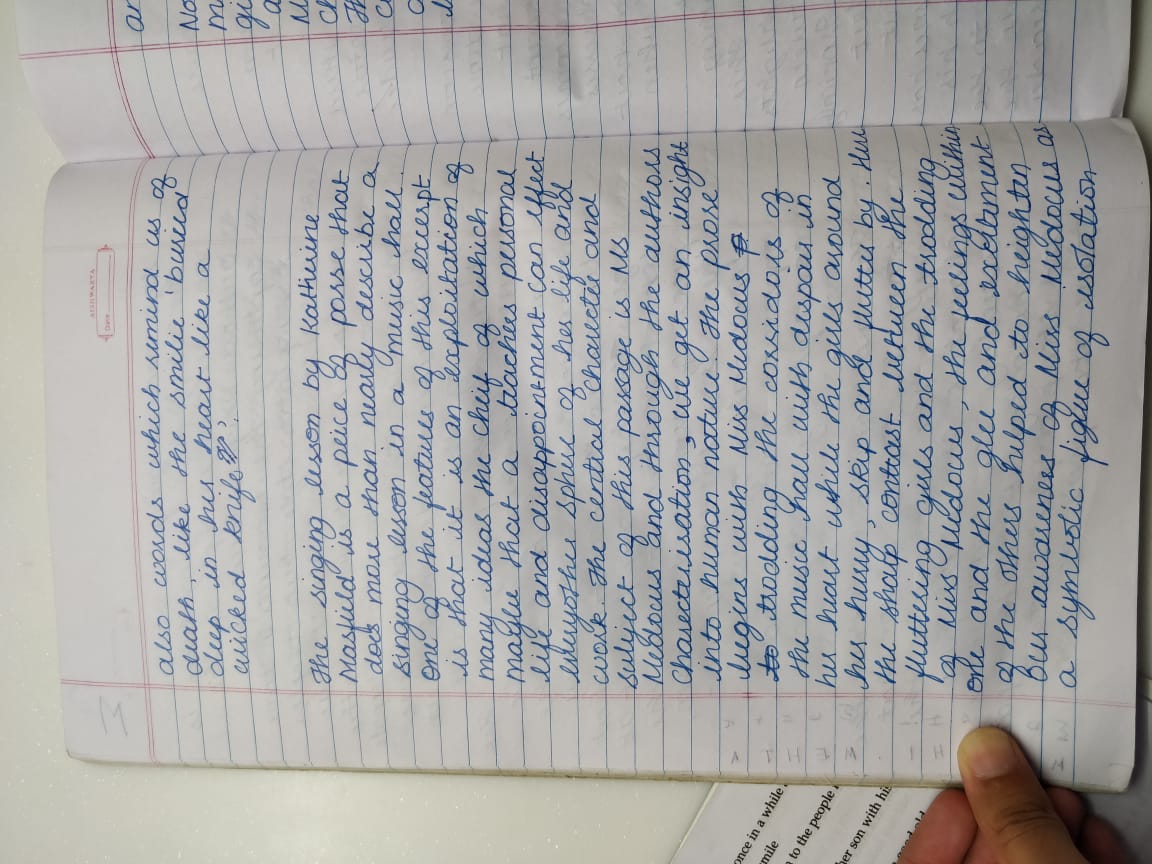 AISHWARYA
Date
also words which remind us of
death, like the smile 'buried
deep in her heart like a
wicked knife'.
The singing lesson by Katherine
Masfield is a peice of porse that
does more than nearly describe a
singing lesson in a music hall.
One of the features of this excerpt
is that it is an exploitation of
many ideas the cheif of which
maybe that a teachers personal
life and disappointment can effect
sphere of her life and
work. The central charecter and
subject of this passage is Ms
Medocus and through the authors
charecterisation, we get an insight
into human nature. The prose
begins with Miss Medocus
trodding the corsidois of
the music hall with despair in
her heart while the girls around
her hurry, skip and flutter by. The
the sharp contrast between the
fluttering girls and the trodding
of Miss Medocus, the feelings within
one and the glee and excitement
of the others helped to heighten
our awareness of Miss Medocus as
a symbolic figure of isolation
once in a while
mile
n to the people
her son with his